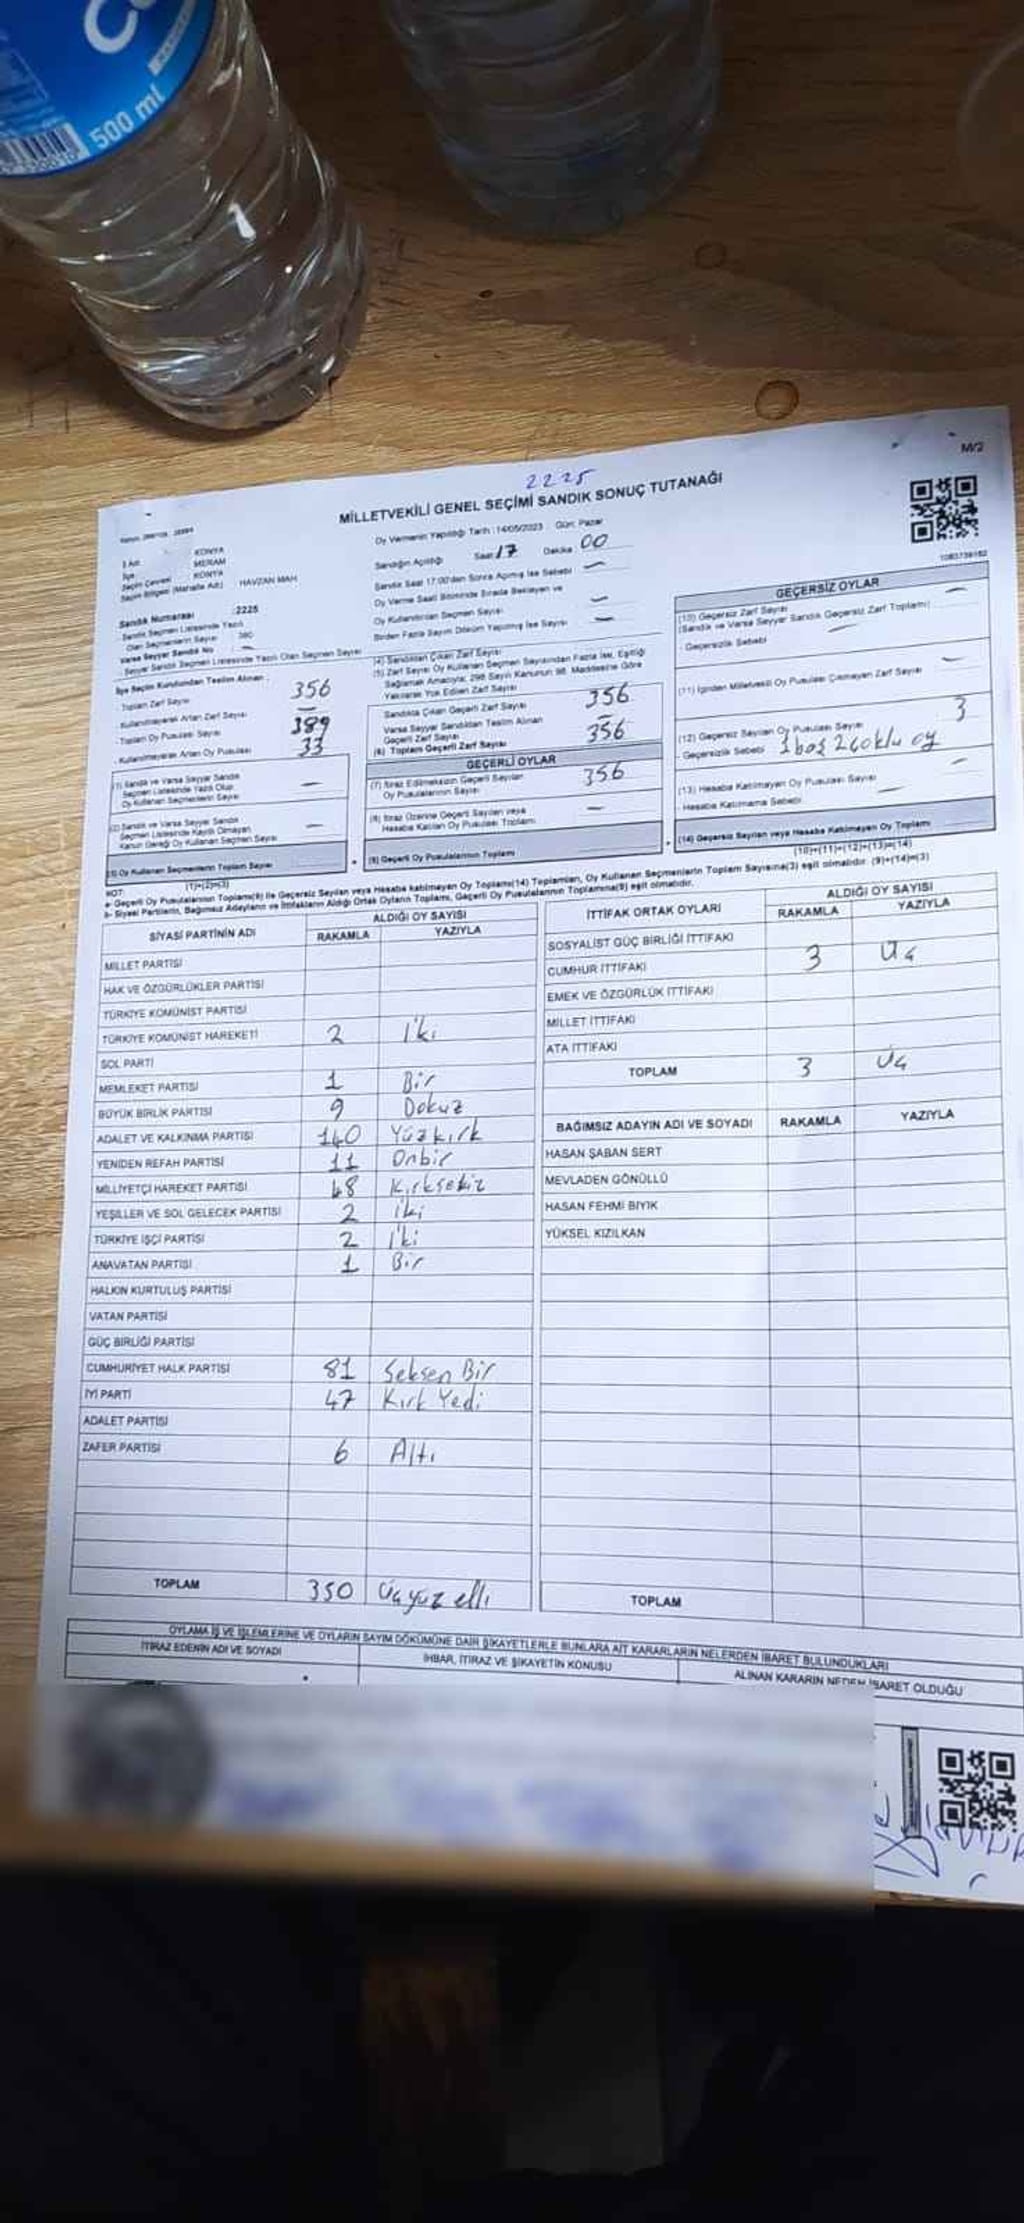 500 ml
M/2
2225
MİLLETVEKİLİ GENEL SEÇİMİ SANDIK SONUÇ TUTANAĞI
Oy Vermenin Yapıldığı Tarih : 14/05/2023 Gün: Pazar
KONYA
MERAM
KONYA
Seçim Bölgesi (Mahalle Adı) HAVZAN MAH
Sandık Numarası :2225
Sandığın Açıldığı Saat 17 Dakika 00
Sandık Saat 17:00'den Sonra Açılmış İse Sebebi —
Oy Verme Saati Bitiminde Sırada Bekleyen ve
Oy Kullandırılan Seçmen Sayısı —
Birden Fazla Sayım Döküm Yapılmış İse Sayısı —
İlçe Seçim Kurulundan Teslim Alınan
Toplam Zarf Sayısı 356
Kullanılmayarak Artan Zarf Sayısı —
Toplam Oy Pusulası Sayısı 389
Kullanılmayarak Artan Oy Pusulası 33
(1) Sandık ve Varsa Seyyar Sandık
Seçmen Listesinde Yazılı Olup
Oy Kullanan Seçmenlerin Sayısı —
(2) Sandık ve Varsa Seyyar Sandık
Seçmen Listesinde Kayıtlı Olmayan
Kanun Gereği Oy Kullanan Seçmen Sayısı —
(3) Oy Kullanan Seçmenlerin Toplam Sayısı
(1)+(2)=(3)
(4) Sandıktan Çıkan Zarf Sayısı
(5) Zarf Sayısı Oy Kullanan Seçmen Sayısından Fazla İse, Eşitliği
Sağlamak Amacıyla; 298 Sayılı Kanunun 98. Maddesine Göre
Yakılarak Yok Edilen Zarf Sayısı
Sandıkta Çıkan Geçerli Zarf Sayısı 356
Varsa Seyyar Sandıktan Teslim Alınan
Geçerli Zarf Sayısı —
(6) Toplam Geçerli Zarf Sayısı 356
GEÇERLİ OYLAR
(7) İtiraz Edilmeksizin Geçerli Sayılan
Oy Pusulalarının Sayısı 356
(8) İtiraz Üzerine Geçerli Sayılan veya
Hesaba Katılan Oy Pusulası Toplamı —
(9) Geçerli Oy Pusulalarının Toplamı
GEÇERSİZ OYLAR
(10) Geçersiz Zarf Sayısı —
(Sandık ve Varsa Seyyar Sandık Geçersiz Zarf Toplamı)
Geçersizlik Sebebi —
(11) İçinden Milletvekili Oy Pusulası Çıkmayan Zarf Sayısı —
(12) Geçersiz Sayılan Oy Pusulası Sayısı 3
Geçersizlik Sebebi 1 boş 2 çoklu oy
(13) Hesaba Katılmayan Oy Pusulası Sayısı —
Hesaba Katılmama Sebebi —
(14) Geçersiz Sayılan veya Hesaba Katılmayan Oy Toplamı
(10)+(11)+(12)+(13)=(14)
NOT:
a- Geçerli Oy Pusulalarının Toplamı(9) ile Geçersiz Sayılan veya Hesaba katılmayan Oy Toplamı(14) Toplamları, Oy Kullanan Seçmenlerin Toplam Sayısına(3) eşit olmalıdır. (9)+(14)=(3)
b- Siyasi Partilerin, Bağımsız Adayların ve İttifakların Aldığı Ortak Oyların Toplamı, Geçerli Oy Pusulalarının Toplamına(9) eşit olmalıdır.
SİYASİ PARTİNİN ADI ALDIĞI OY SAYISI
RAKAMLA YAZIYLA
MİLLET PARTİSİ
HAK VE ÖZGÜRLÜKLER PARTİSİ
TÜRKİYE KOMÜNİST PARTİSİ
TÜRKİYE KOMÜNİST HAREKETİ 2 İki
SOL PARTİ
MEMLEKET PARTİSİ 1 Bir
BÜYÜK BİRLİK PARTİSİ 9 Dokuz
ADALET VE KALKINMA PARTİSİ 140 Yüzkırk
YENİDEN REFAH PARTİSİ 11 Onbir
MİLLİYETÇİ HAREKET PARTİSİ 48 Kırksekiz
YEŞİLLER VE SOL GELECEK PARTİSİ 2 İki
TÜRKİYE İŞÇİ PARTİSİ 2 İki
ANAVATAN PARTİSİ 1 Bir
HALKIN KURTULUŞ PARTİSİ
VATAN PARTİSİ
GÜÇ BİRLİĞİ PARTİSİ
CUMHURİYET HALK PARTİSİ 81 Seksen Bir
İYİ PARTİ 47 Kırk Yedi
ADALET PARTİSİ
ZAFER PARTİSİ 6 Altı
TOPLAM 350 Üçyüz elli
İTTİFAK ORTAK OYLARI ALDIĞI OY SAYISI
RAKAMLA YAZIYLA
SOSYALİST GÜÇ BİRLİĞİ İTTİFAKI
CUMHUR İTTİFAKI 3 Üç
EMEK VE ÖZGÜRLÜK İTTİFAKI
MİLLET İTTİFAKI
ATA İTTİFAKI
TOPLAM 3 Üç
BAĞIMSIZ ADAYIN ADI VE SOYADI RAKAMLA YAZIYLA
HASAN ŞABAN SERT
MEVLADEN GÖNÜLLÜ
HASAN FEHMİ BIYIK
YÜKSEL KIZILKAN
TOPLAM
OYLAMA İŞ VE İŞLEMLERİNE VE OYLARIN SAYIM DÖKÜMÜNE DAİR ŞİKAYETLERLE BUNLARA AİT KARARLARIN NELERDEN İBARET BULUNDUKLARI
İTİRAZ EDENİN ADI VE SOYADI İHBAR, İTİRAZ VE ŞİKAYETİN KONUSU ALINAN KARARIN NEDEN İBARET OLDUĞU